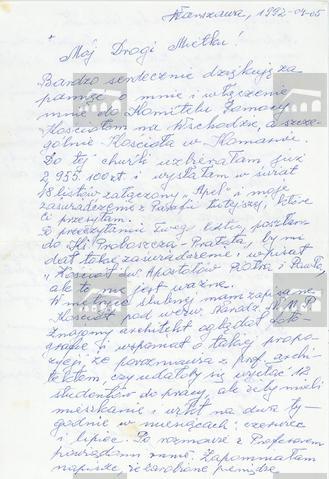 Warszawa, 1992-04-05
Mój Drogi Mietku!
Bardzo serdecznie dziękuję za
pamięć mnie i włączenie
mnie do Komitetu Pomocy
Kościołom na Wschodzie, a szcze-
gólnie Kościoła w
Do tej chwili uzbierałam już
2 955.100 zł i wysłałam w świat
18 listów załączony "Apel" i moje
zaświadczenie z Parafii tutejszej, które
Ci przesyłam.
Po przeczytaniu Twego listu poszłam
do Ks. Proboszcza - Prałata, by mi
dał takie zaświadczenie i wpisał
"Kościół św. Apostołów Piotra i Pawła,
ale to nie jest ważne.
W metryce ślubnej mam zapisane
Kościół pod wezw. N.M.P.
Znajomy architekt oglądał foto-
grafie i wspomniał o takiej propo-
zycji, że porozmawia z prof. archi-
tektem, czy udałoby się wysłać 12
studentów do pracy, ale żeby mieli
mieszkanie i wikt na dwa ty-
godnie w miesiącach: czerwiec
i lipiec. Po rozmowie z Profesorem
powiadomi mnie. Zapomniałam
napisać, że zarobione pieniądze